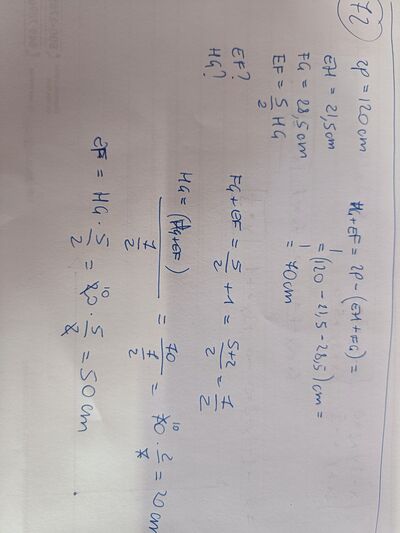 72
2P = 120 cm
EH = 21,5 cm
FG = 28,5 cm
EF = 5/2 HG
EF?
HG?
HG + EF = 2P - (EH + FG) =
= (120 - 21,5 - 28,5) cm =
= 70 cm
FG + EF = 5/2 + 1 = 5+2/2 = 7/2
HG = (HG + EF) / 7/2 = 70 / 7/2 = 70 10 · 2/7 = 20 cm
EF = HG · 5/2 = 20 10 · 5/2 = 50 cm